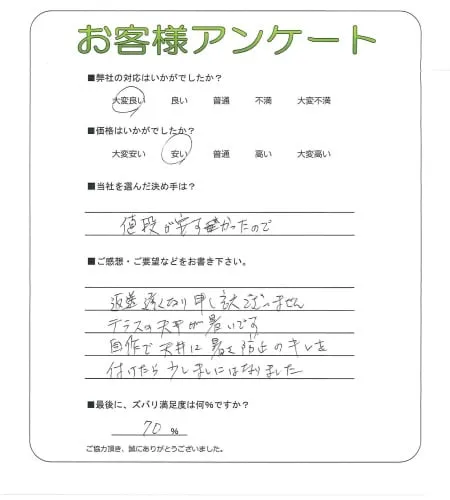 お客様アンケート
■弊社の対応はいかがでしたか？
大変良い 良い 普通 不満 大変不満
■価格はいかがでしたか？
大変安い 安い 普通 高い 大変高い
■当社を選んだ決め手は？
値段が安かったので
■ご感想・ご要望などをお書き下さい。
返送遅くなり申し訳ございません
テラスの天井が暑いです
自作で天井に暑さ防止のキレを
付けたら少しましにはなりました
■最後に、ズバリ満足度は何％ですか？
70 ％
ご協力頂き、誠にありがとうございました。